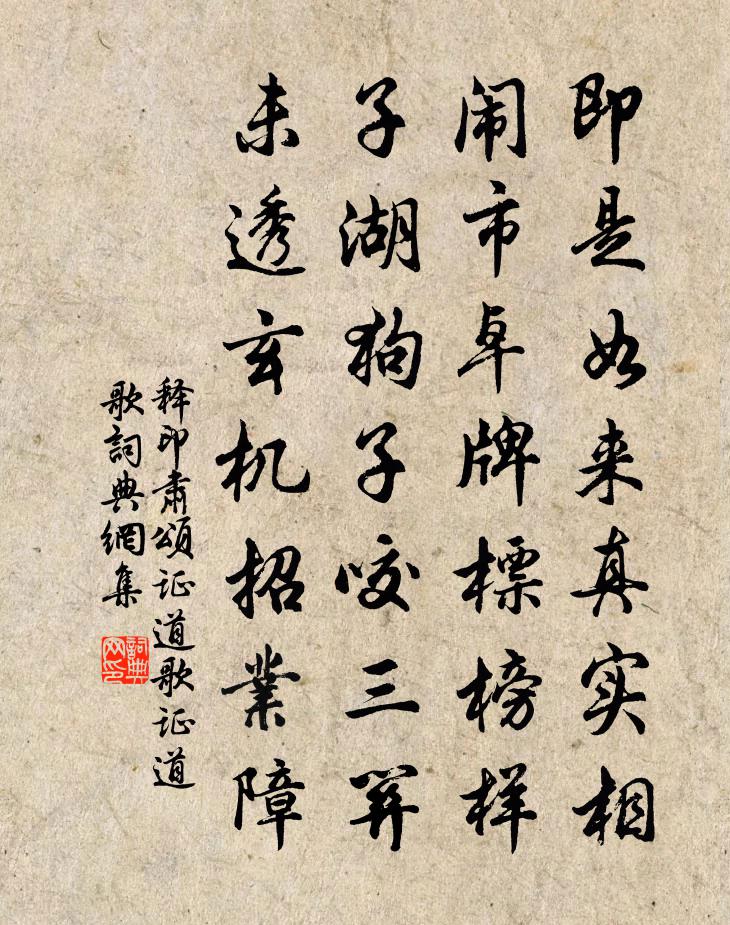 即是如来真实相
闹市卓牌標榜样
子湖狗子咬三
未透玄机招業障
释印肅頌证道歌证道
歌詞典網集
詞典网印